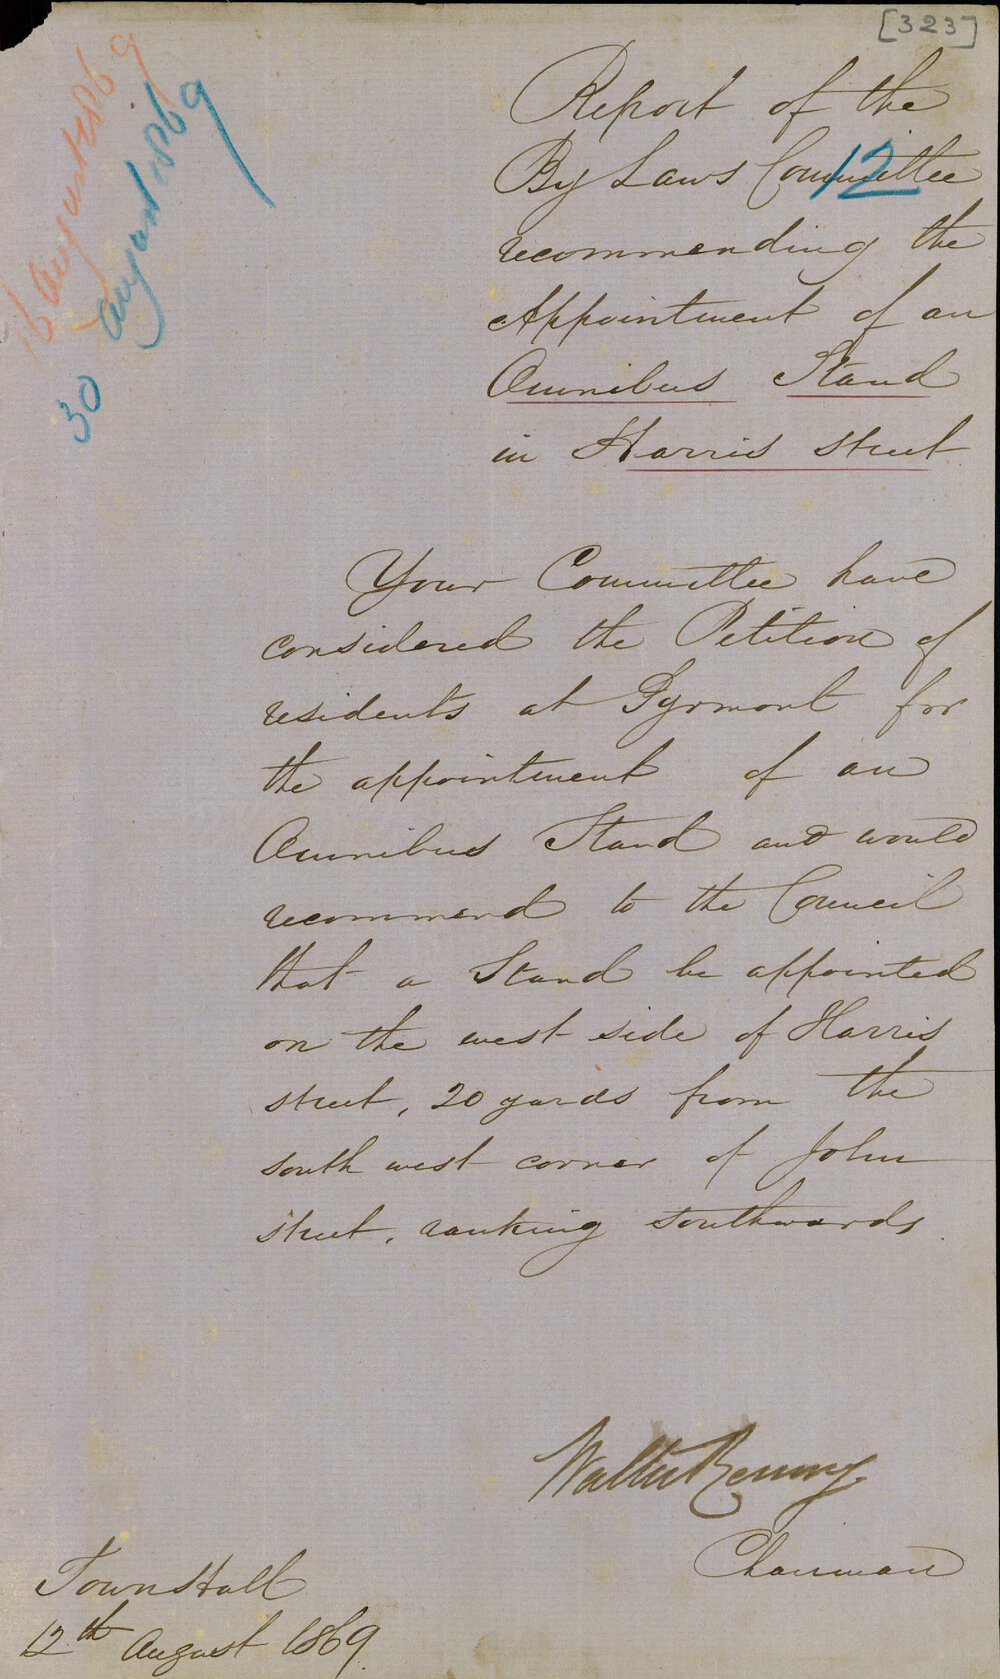 [323]
16 August 1869
30 August 1869
Report of the
By Laws Committee
12
recommending the
Appointment of an
Omnibus Stand
in Harris street
Your Committee have
considered the Petition of
residents at Pyrmont for
the appointment of an
Omnibus Stand and would
recommend to the Council
that a Stand be appointed
on the west side of Harris
street, 20 yards from the
south west corner of John
street, ranking southwards.
Walter Renny
Chairman
Town Hall
12th August 1869.